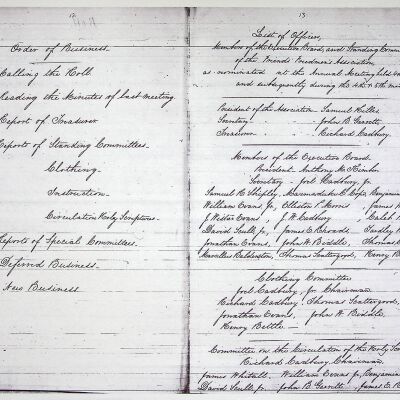 12
Order of Business.
Calling the Roll
Reading the Minutes of last meeting.
Report of Treasurer
Reports of Standing Committees.
Clothing.
Instruction.
Circulation Holy Scriptures.
Reports of Special Committees.
Deferred Business.
New Business
13
List of Officers,
Members of the Executive Board, and Standing Comm
of the Friends Freedmen's Association
as nominated at the Annual Meeting held
and subsequently during the
President of the Association Samuel
Secretary John B. Garrett
Treasurer Richard Cadbury
Members of the Executive Board.
President Anthony M. Kimber
Secretary Joel Cadbury, Jr.
Samuel R. Shipley, Marmaduke C. Cope, Benjamin
William Evans Jr, Elliston P. Morris, James
J. Wistar Evans, J. W. Cadbury, Caleb
David Scull Jr, James E. Rhoads,
Jonathan Evans, John W. Biddle, Thomas
Marcellus Balderston, Thomas Scattergood, Henry B
Clothing Committee
Joel Cadbury, Jr. Chairman
Richard Cadbury, Thomas Scattergood,
Jonathan Evans, John W. Biddle,
Henry Bettle
Committee on the Circulation of the Holy
Richard Cadbury, Chairman
James Whitall, William Evans Jr, Benjamin
David Scull Jr. John B. Garrett, James E. R